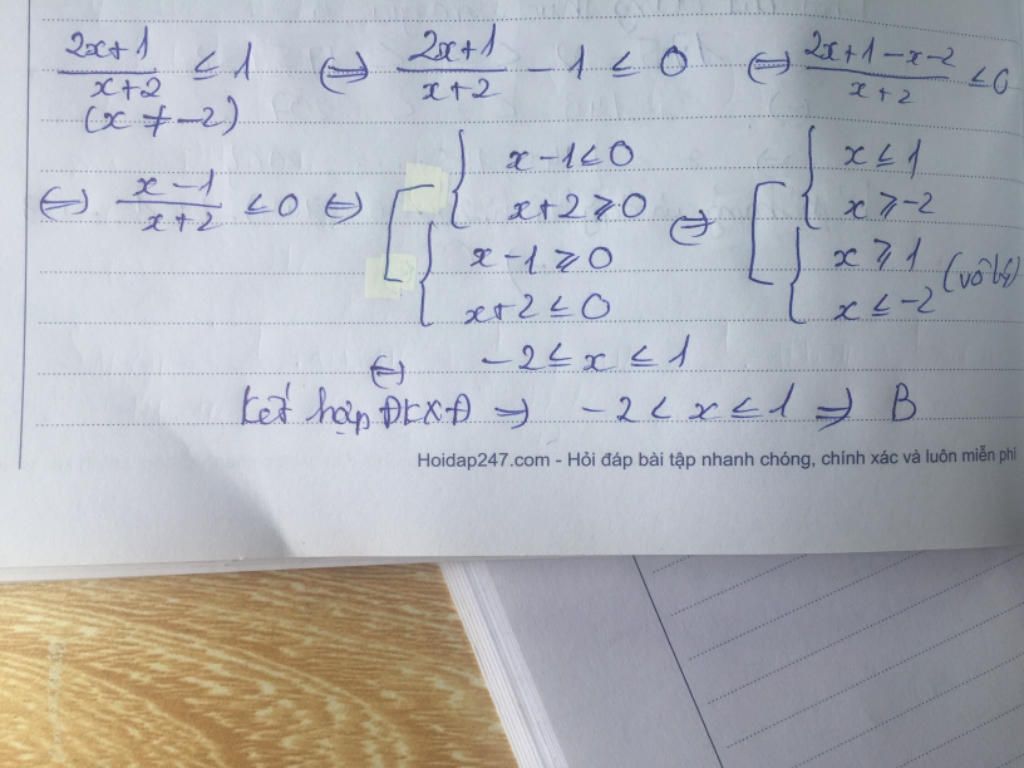 2x+1/x+2 ≤ 1 ⇔ 2x+1/x+2 - 1 ≤ 0 ⇔ 2x+1-x-2/x+2 ≤ 0
(x ≠ -2)
⇔ x-1/x+2 ≤ 0 ⇔ [ { x-1 ≤ 0 ⇔ [ { x ≤ 1
x+2 ≥ 0 x ≥ -2
{ x-1 ≥ 0 { x ≥ 1 (vô lý)
x+2 ≤ 0 x ≤ -2
⇔ -2 ≤ x ≤ 1
Kết hợp ĐKXĐ ⇒ -2 < x ≤ 1 ⇒ B
Hoidap247.com - Hỏi đáp bài tập nhanh chóng, chính xác và luôn miễn phí